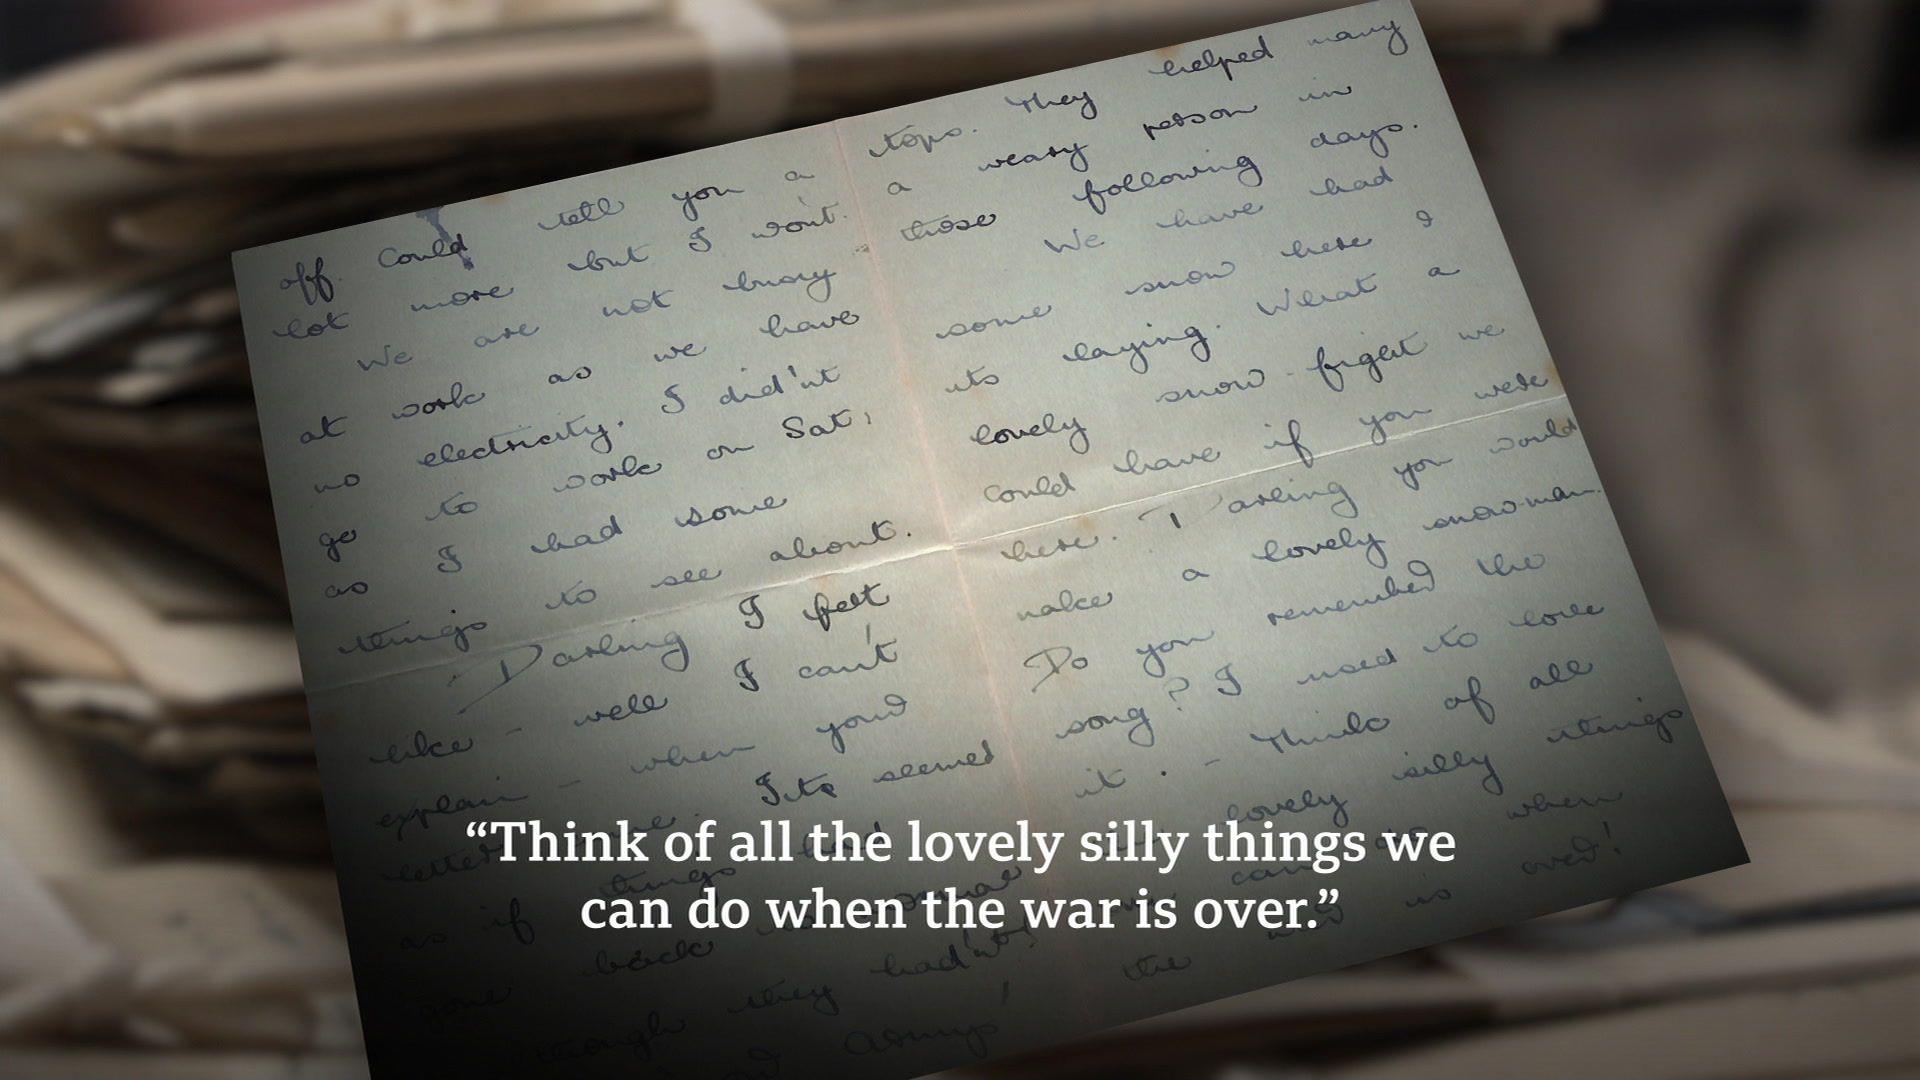 off. Could tell you a
lot more but I won't.
We are not busy
at work as we have
no electricity. I did'nt
go to work on Sat:
as I had some
things to see about.
Darling I felt
like - well I can't
explain - when your
letter Its seemed
as if things had
gone back to normal
though they had'nt!
Army
tops. They helped many
a weary person in
those following days.
We have had
some snow here &
its laying. What a
lovely snow-fight we
could have if you were
here. Darling you would
make a lovely snow-man.
Do you remember the
song? I used to love
it. - Think of all
lovely silly things
can when
the war is over!
“Think of all the lovely silly things we
can do when the war is over.”